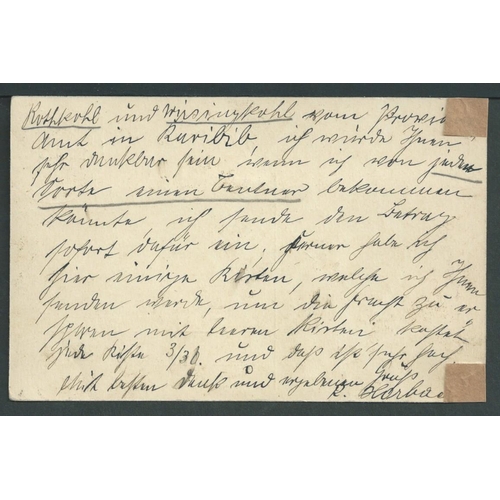 Rothkohl und Wirsingkohl vom Provi
Amt in Karibib ich würde Ihnen
sehr dankbar sein wenn ich von jeder
Sorte einen Centner bekommen
könnte, ich sende den Betrag
sofort dafür ein, ferner habe ich
hier einige Kisten, welche ich Ihnen
senden werde, um die Fracht zu er
sparen mit leeren Kisten kostet
jede Kiste 3/30. und daß ist sehr hoch
Mit besten Dank und ergebenen Gruß